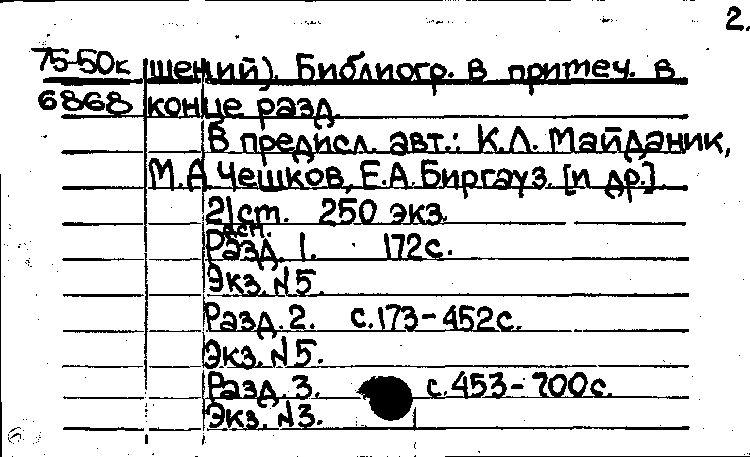 2.
75-50к шений). Библиогр. в примеч. в
6868 конце разд.
В предисл. авт.: К.Л. Майданик,
М.А. Чешков, Е.А. Биргауз. [и др.].
21 см. 250 экз.
Разд. 1. 172 с.
Экз. N5.
Разд. 2. с. 173-452 с.
Экз. N5.
Разд. 3. с. 453-700 с.
Экз. N3.